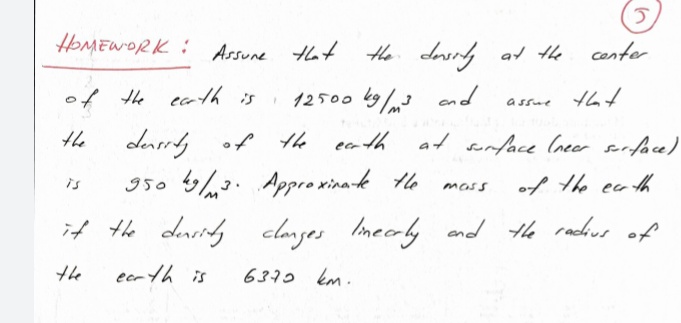 5
HOMEWORK : Assume that the density at the center
of the earth is 12500 kg/m³ and assume that
the density of the earth at surface (near surface)
is 950 kg/m³. Approximate the mass of the earth
if the density changes linearly and the radius of
the earth is 6370 km.